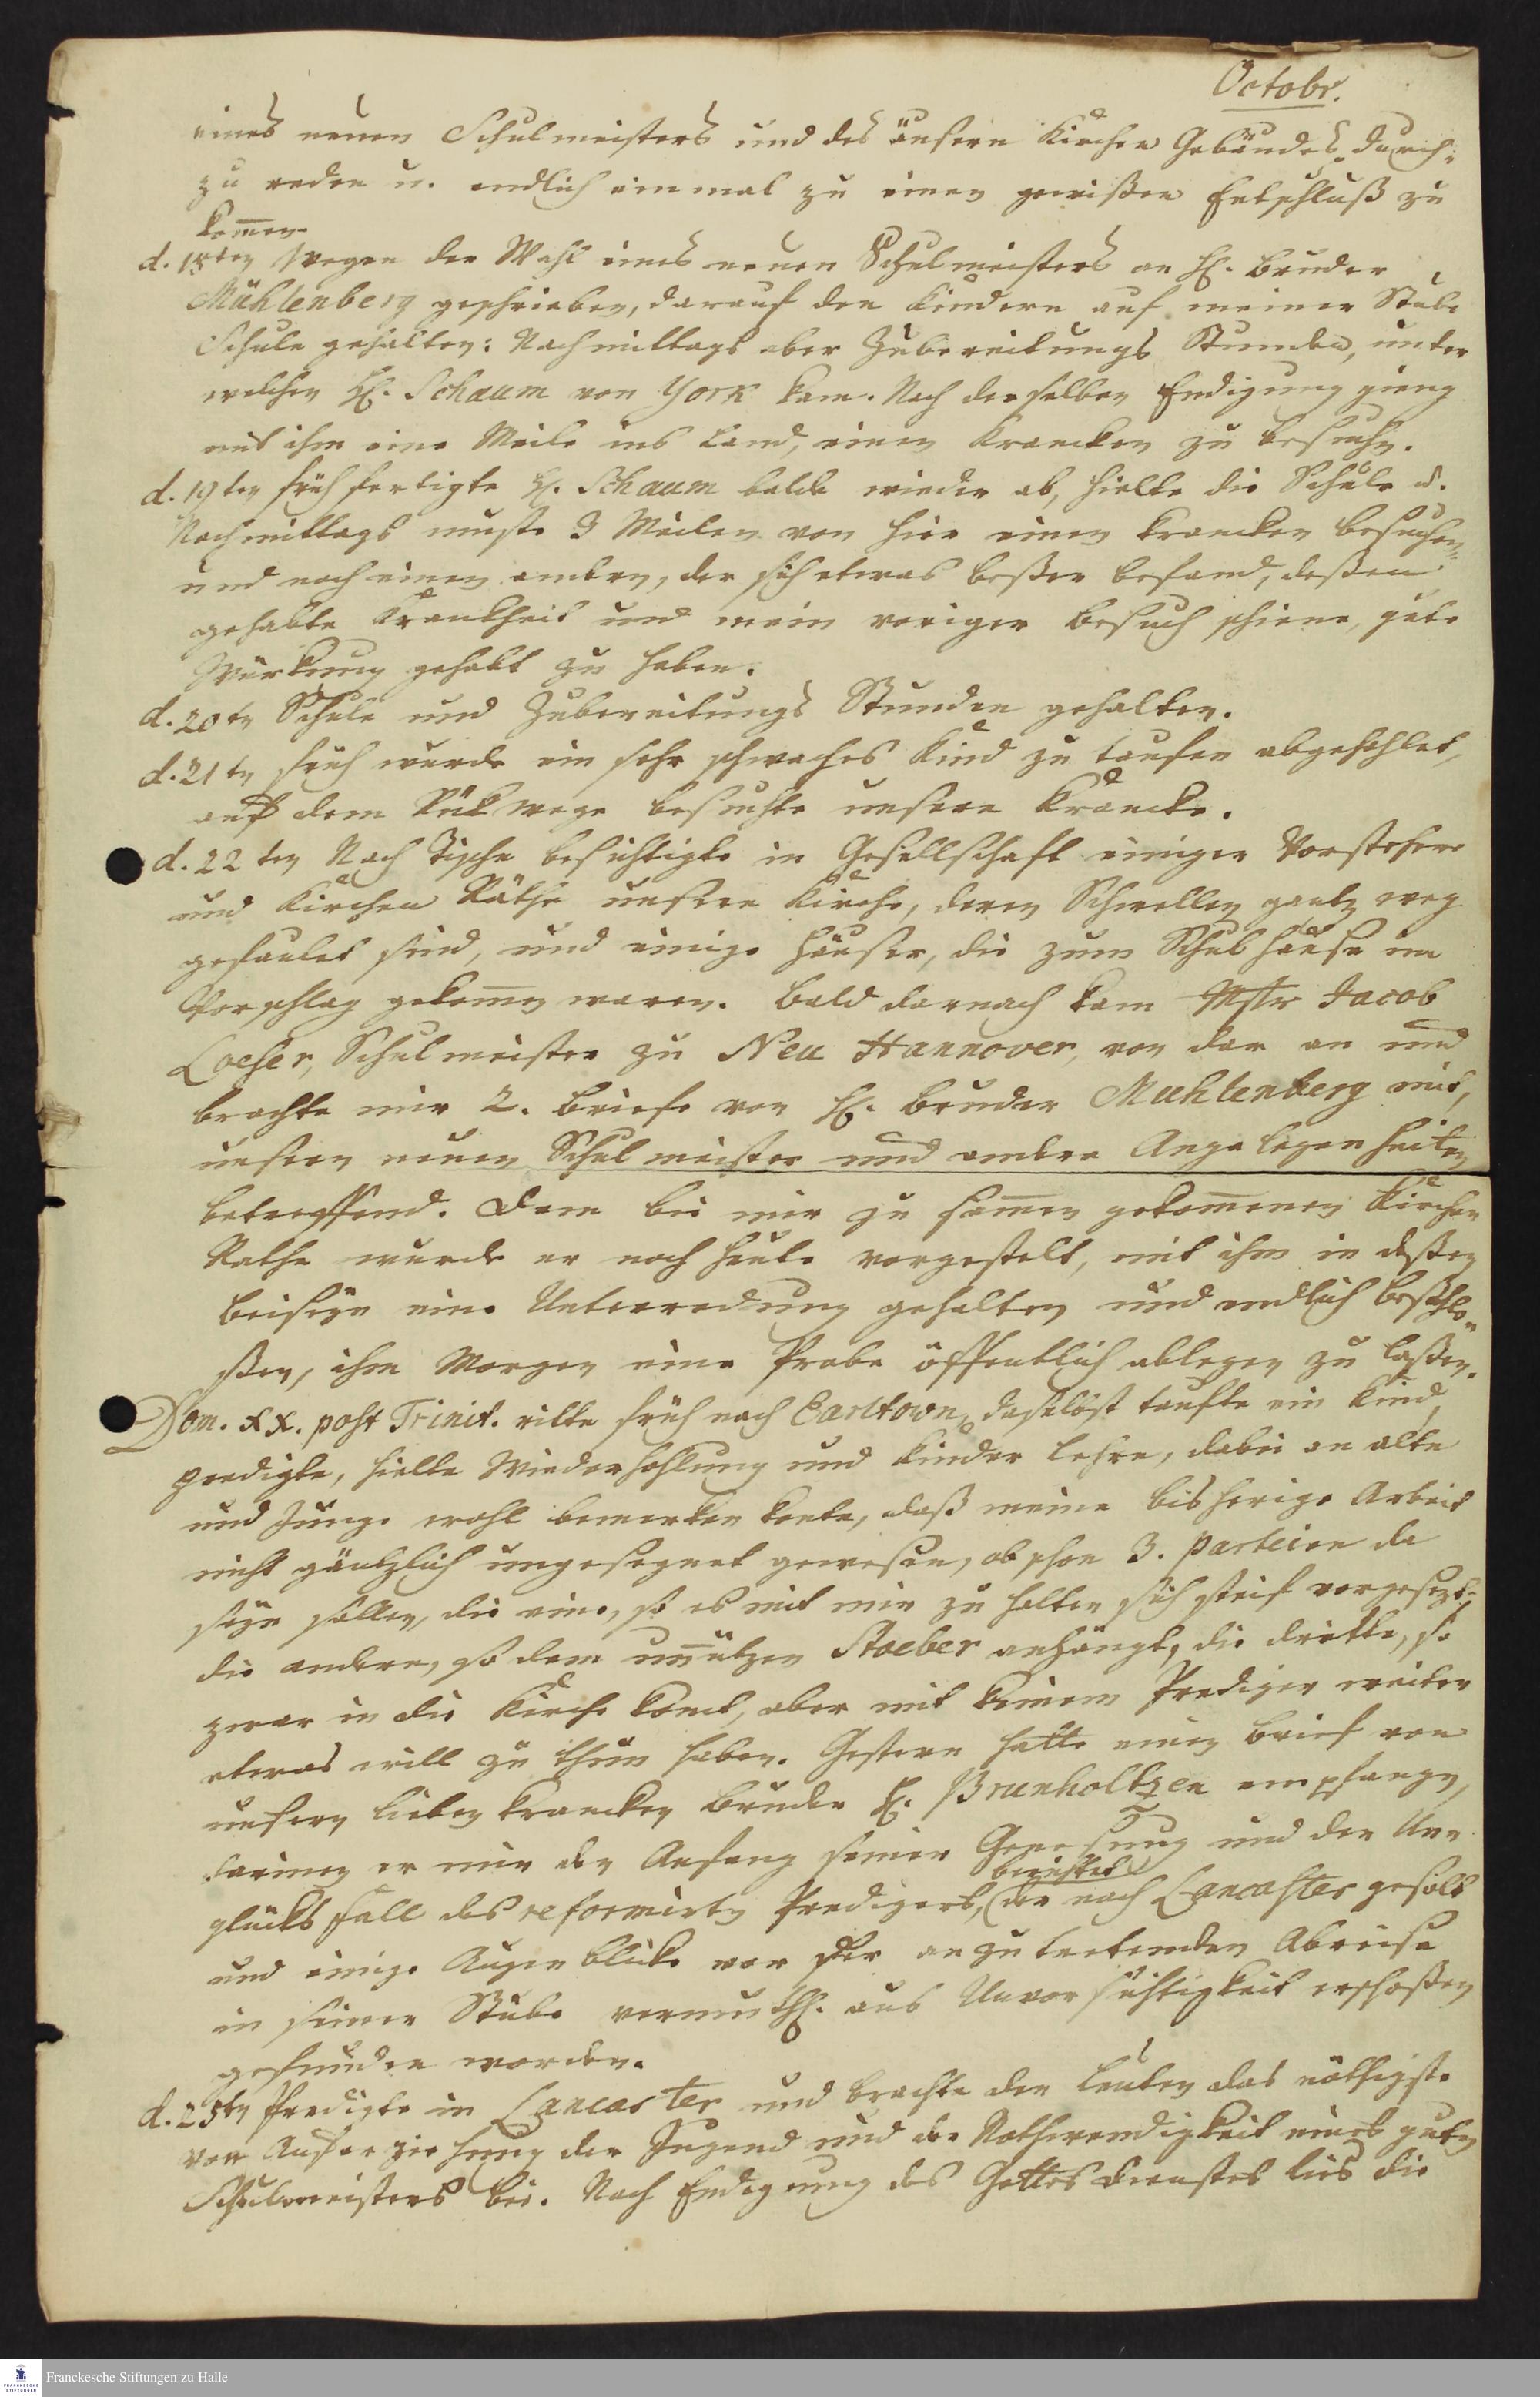 Octobr.
eines neuen Schulmeisters und des äusern Kirchen Gebäudes durch-
zu reden u. endlich einmal zu einen gewißen Entschluß zu
kom̅en.
d. 18ten Wegen der Wahl eines neuen Schulmeisters an H. Bruder
Mühlenberg geschrieben, darauf den Kindern auf meiner Stube
Schule gehalten: Nachmittags aber Zubereitungs Stunden, unter
welchen H. Schaum von York kam. Nach derselben Endigung gieng
mit ihm eine Meile ins Land, einen Krancken zu besuchen.
d. 19ten früh fertigte H. Schaum balde wieder ab, hielte die Schule u.
Nachmittags muste 3 Meilen von hier einen krancken besuchen
und noch einen andern, der sich etwas beßer befand, deßen
gehabte Krankheit und mein voriger besuch schiene, gute
Würkung gehabt zu haben.
d. 20tn Schule und Zubereitungs Stunden gehalten.
d. 21tn früh wurde ein sehr schwaches Kind zu taufen abgehohlet,
auf dem Rükwege besuchte unsere Krancke.
d. 22ten Nach Tische besichtigte in Gesellschaft einiger Vorstehere
und Kirchen Räthe unsere Kirche, deren Schwellen gantz weg
gefaulet sind, und einige Häuser, die zum Schulhause im
Vorschlag gekom̅en waren. Bald darnach kam Mstr Jacob
Loeser, Schulmeister zu Neu Hannover, von dar an und
brachte mir 2. Briefe von H. Bruder Muhlenberg mit,
unsern neuen Schulmeister und andere Angelegenheiten
betreffend. Dem bei mir zu sam̅en gekom̅enen Kirchen
Rathe wurde er noch heute vorgestelt, mit ihm in deßen
beiseyn eine Unterredung gehalten und endlich beschlo-
ßen, ihm Morgen eine Probe öffentlich ablegen zu laßen.
Dom. XX. post Trinit. ritte früh nach Earltown, daselbst taufte ein Kind,
predigte, hielte Wiederhohlung und Kinder Lehre, dabei an alte
und Junge wohl bemerken konte, daß meine bisherige Arbeit
nicht gäntzlich ungesegnet gewesen, ob schon 3. Parteien da
seyn sollen, die eine, so es mit mir zu halten sich steif vorgesezt,
die andere, so dem un̅ützen Stoeber anhängt, die dritte, so
zwar in die Kirche kom̅t, aber mit keinem Prediger weiter
etwas will zu thun haben. Gestern hatte einen Brief von
unsern lieben krancken Bruder H. Brunholtzen empfangen,
darinnen er mir den Anfang seiner Genesung und den Un-
glücksfall des reformirten Predigers, berichtet (der nach Lancaster gesolt
und einige Augenblicke vor der anzutretenden Abreise
in seiner Stube vermuthl. aus Unvorsichtigkeit erschoßen
gefunden worden.
d. 25tn Predigte in Lancaster und brachte den Leuten das nöthigste
von Auferziehung der Jugend und der Nothwendigkeit eines guten
Schulmeisters bei. Nach Endigung des Gottesdienstes lies die
Franckesche Stiftungen zu Halle